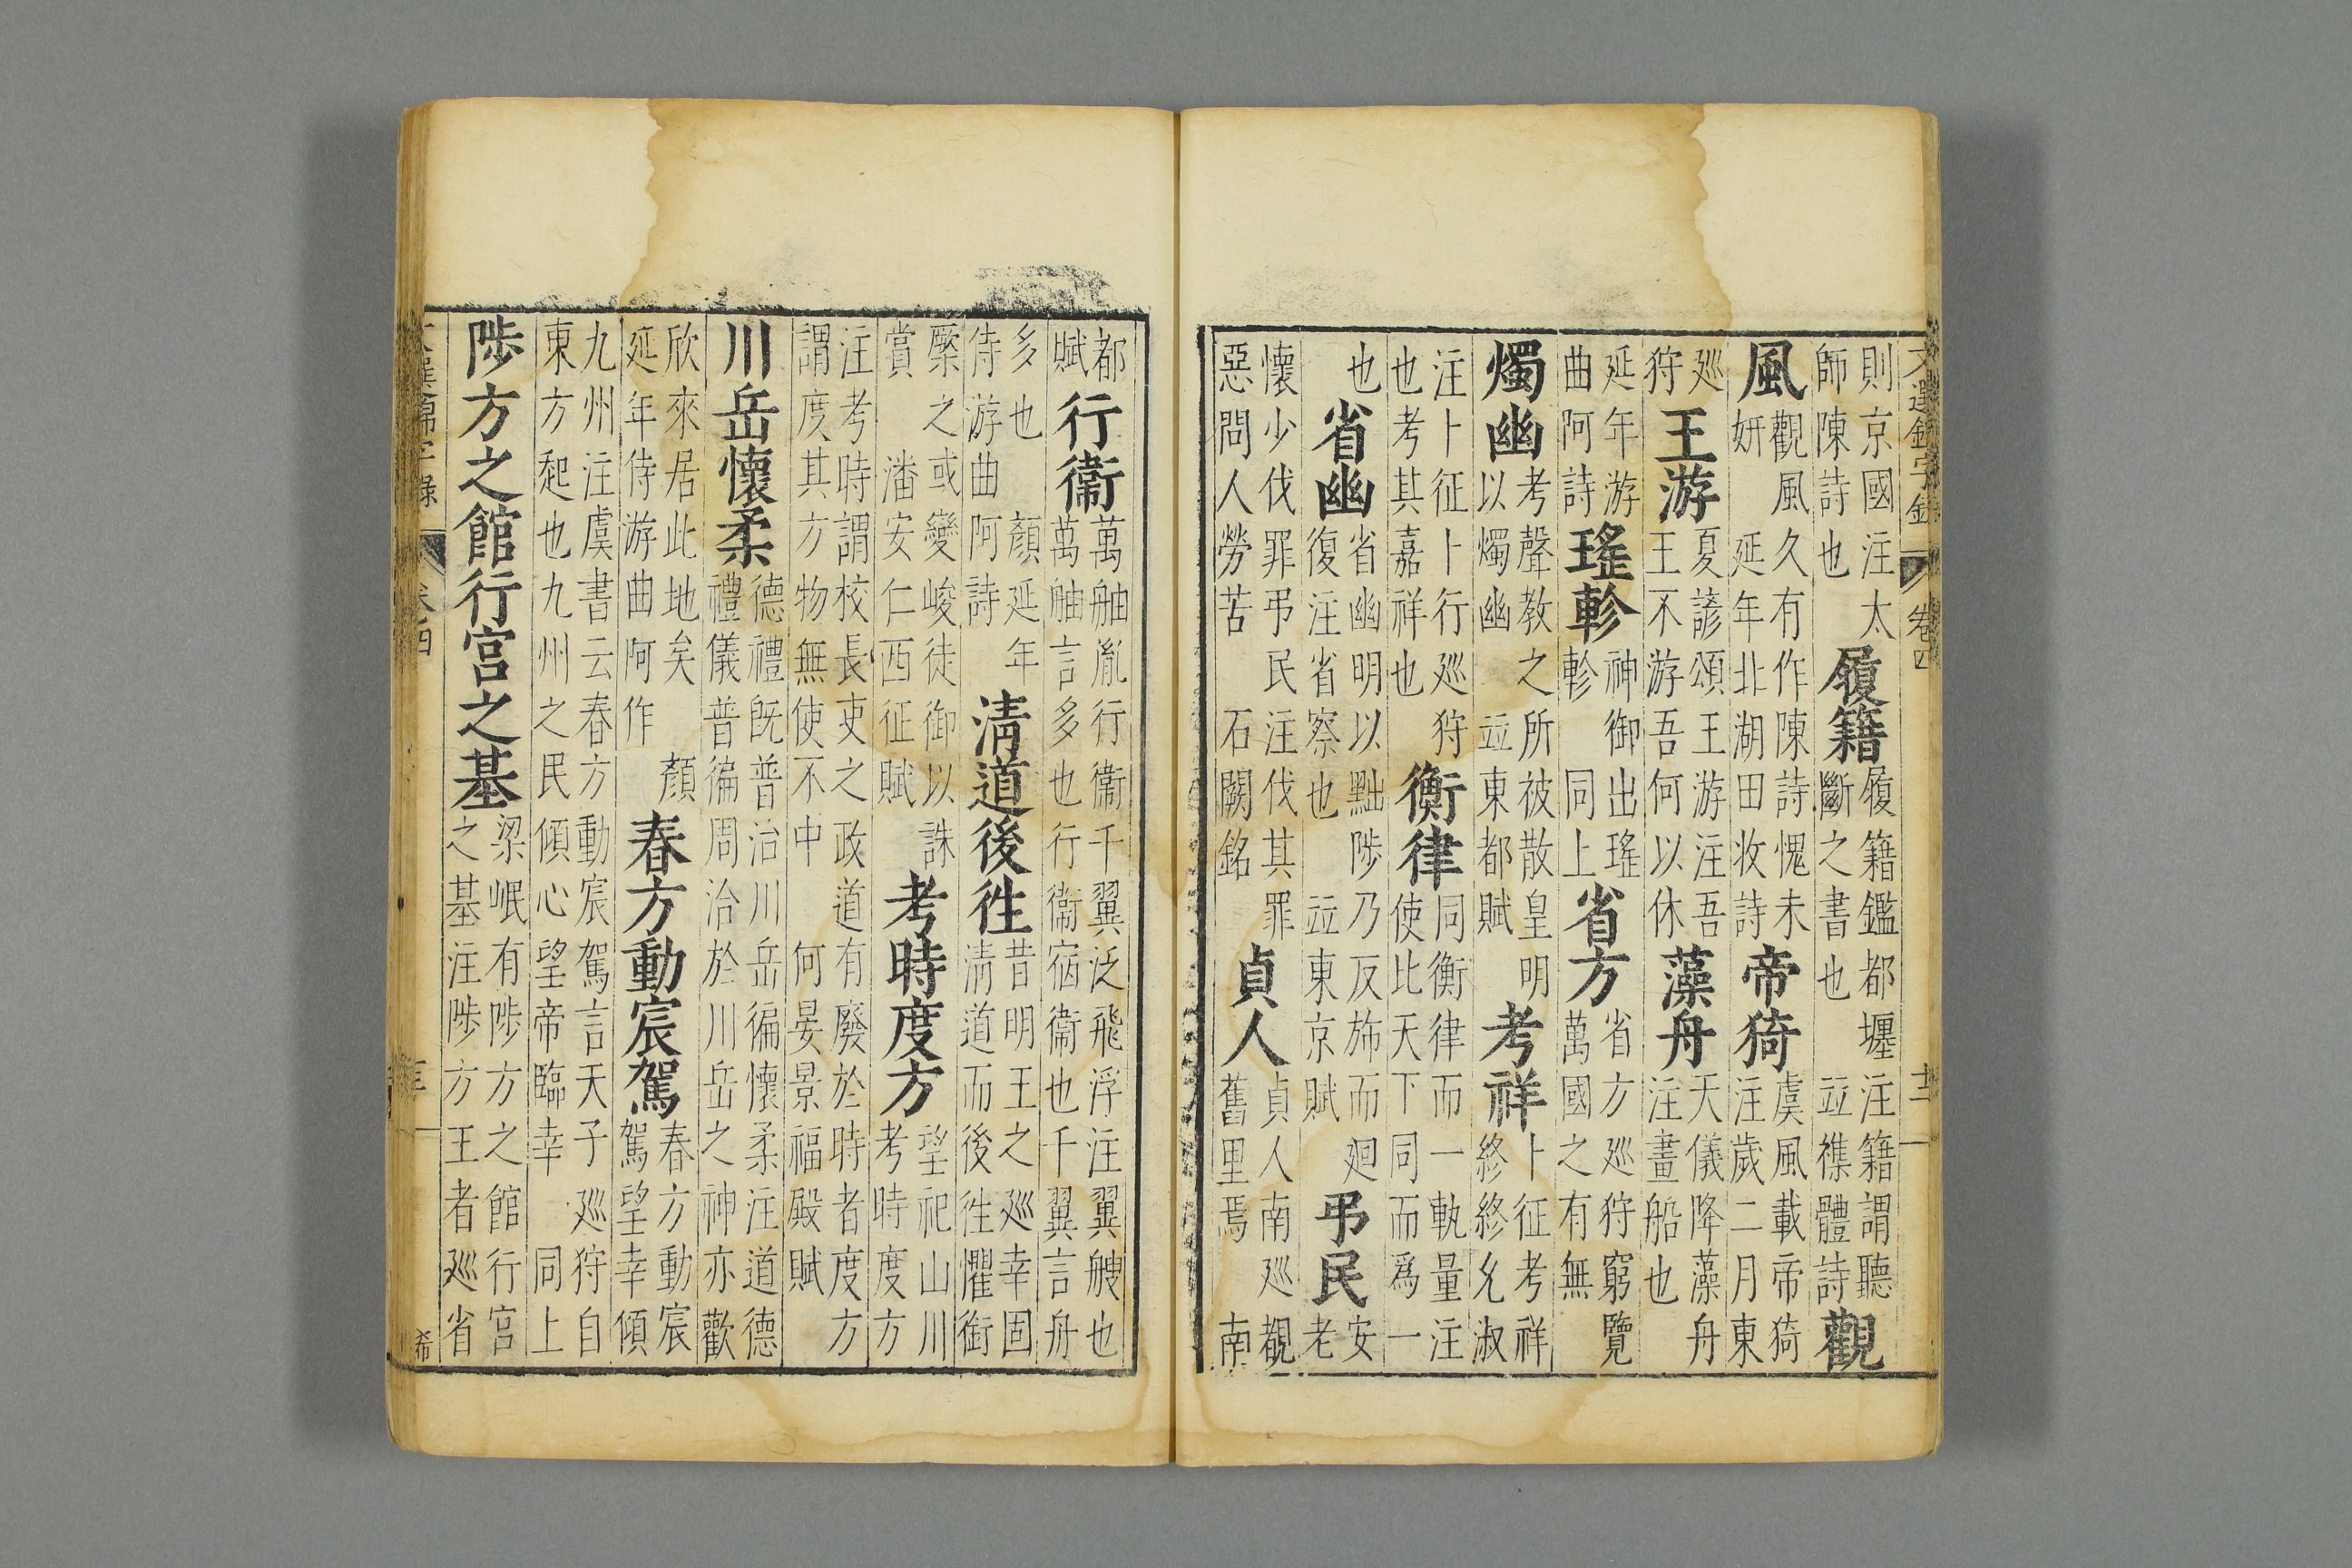 文選錦字錄 卷四 十二
則京國注太師陳詩也履籍履籍鑑都壥注籍謂聽斷之書也竝襍體詩觀
風觀風久有作陳詩愧未妍延年北湖田收詩帝猗虞風載帝猗注歲二月東
廵狩王游夏諺頌王游注吾王不游吾何以休藻舟天儀降藻舟注畫船也
延年游曲阿詩瑤軫神御出瑤軫同上省方省方廵狩窮覽萬國之有無
燭幽考聲教之所被散皇明以燭幽竝東都賦考祥卜征考祥終終允淑
注卜征卜行廵狩也考其嘉祥也衡律同衡律而一軌量注使比天下同而爲一
也省幽省幽明以黜陟乃反斾而廻復注省察也竝東京賦弔民安老
懷少伐罪弔民注伐其罪惡問人勞苦石闕銘貞人貞人南廵覩舊里焉南
都賦行衞萬舳胤行衞千翼泛飛浮注翼艘也萬舳言多也行衞宿衞也千翼言舟
多也顏延年侍游曲阿詩清道後徃昔明王之廵幸固清道而後徃懼銜
橜之或變峻徒御以誅賞潘安仁西征賦考時度方望祀山川考時度方
注考時謂校長吏之政道有廢於時者度方謂度其方物無使不中何晏景福殿賦
川岳懷柔德禮旣普治川岳徧懷柔注道德禮儀普徧周洽於川岳之神亦歡
欣來居此地矣顏延年侍游曲阿作春方動宸駕春方動宸駕望幸傾
九州注虞書云春方動宸駕言天子廵狩自東方起也九州之民傾心望帝臨幸同上
陟方之館行宮之基梁岷有陟方之館行宮之基注陟方王者廵省
選錦字錄 卷四 希